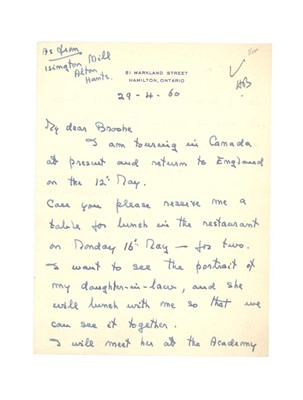 As from
Isington Mill
Alton
Hants.
81 MARKLAND STREET
HAMILTON, ONTARIO
29-4-60
My dear Brooke
I am touring in Canada
at present and return to England
on the 12th May.
Can you please reserve me a
table for lunch in the restaurant
on Monday 16th May — for two.
I want to see the portrait of
my daughter-in-law, and she
will lunch with me so that we
can see it together.
I will meet her at the Academy